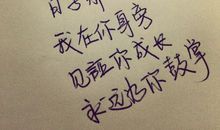 我在你身旁
见证你成长
永远为你鼓掌